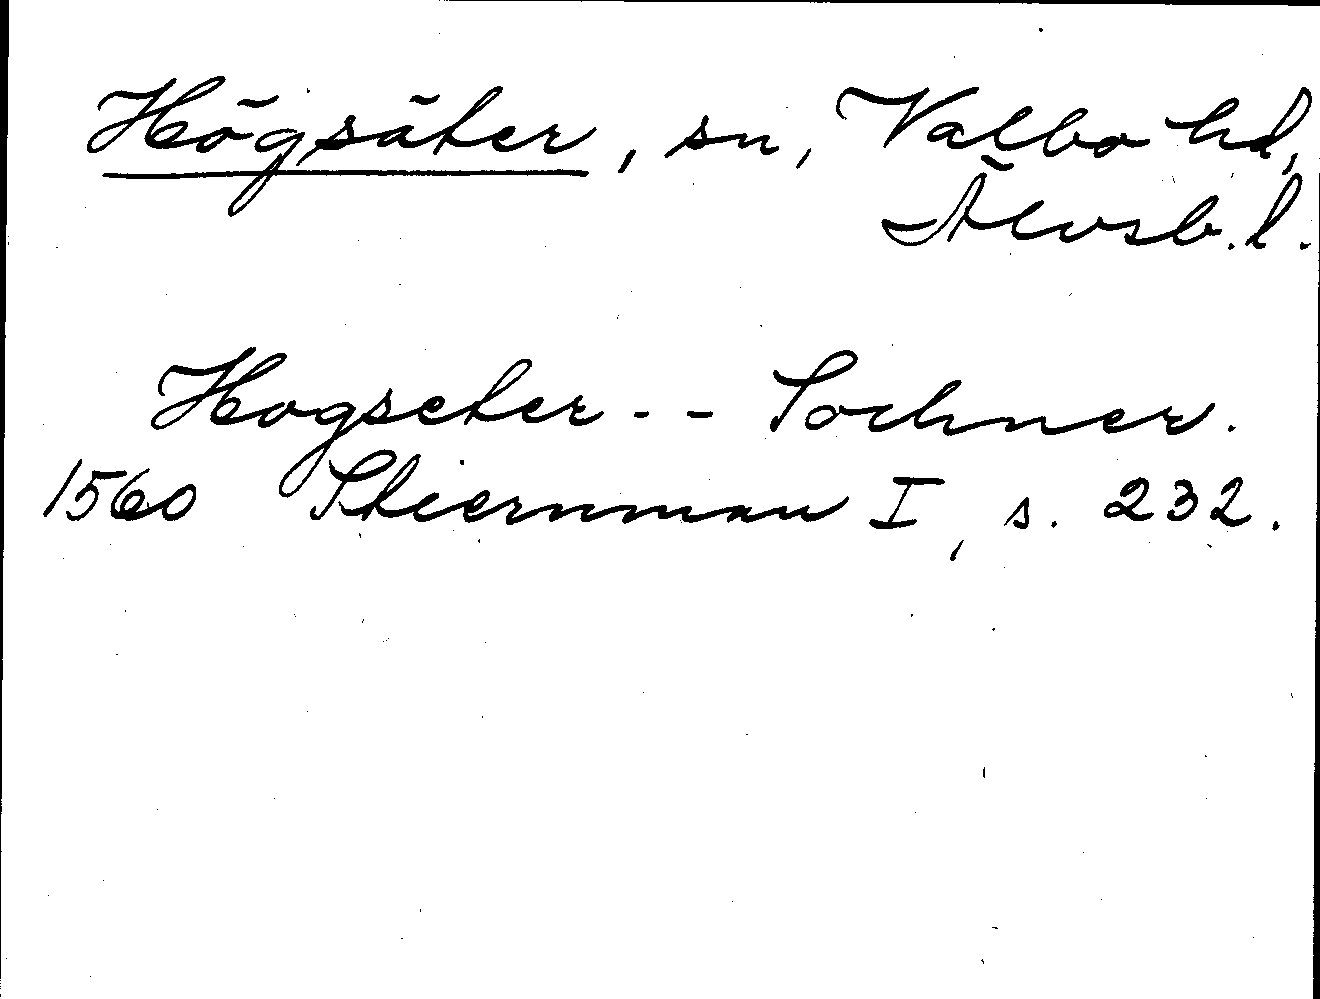 Högsäter, sn, Valbo hd,
Älvsb. l.
Hogseter -- Sochner.
1560 Stiernman I, s. 232.